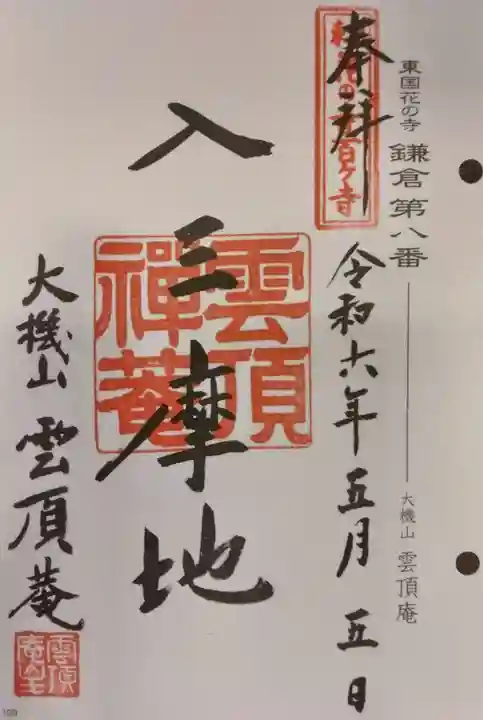 東国花の寺 鎌倉第八番
大機山 雲頂庵
奉拝
令和六年五月五日
入三摩地
雲頂
禅菴
大機山 雲頂菴
雲頂